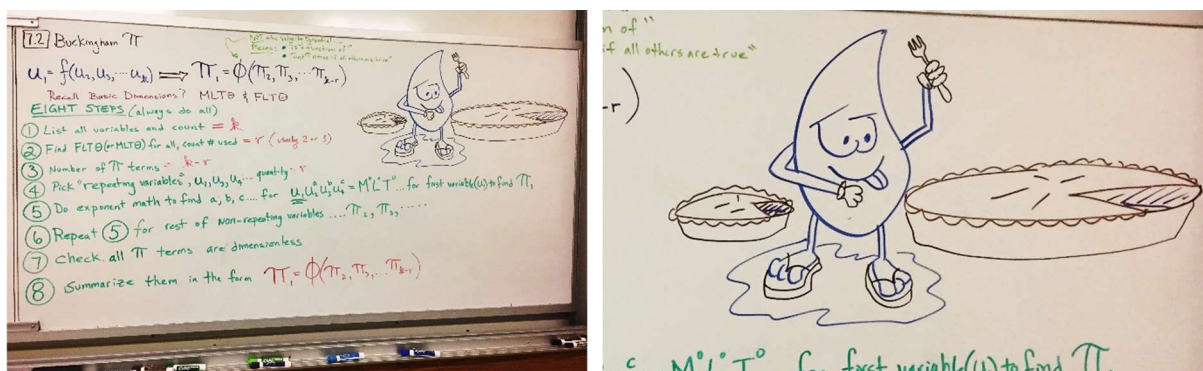 7.2 Buckingham π
NOT the velocity potential
Means: • "is a function of"
u₁ = f(u₂, u₃, ... uₖ) ⟹ π₁ = ϕ(π₂, π₃, ... πₖ₋ᵣ)
Recall Basic Dimensions? MLTθ & FLTθ
EIGHT STEPS (always do all)
① List all variables and count = k
② Find FLTθ (or MLTθ) for all, count # used = r (usually 2 or 3)
③ Number of π terms = k-r
④ Pick "repeating variables", u₂, u₃, u₄... quantity = r
⑤ Do exponent math to find a, b, c.... for u₁u₂ᵃu₃ᵇu₄ᶜ = M⁰L⁰T⁰... for first variable (u₁) to find π₁
⑥ Repeat ⑤ for rest of non-repeating variables .... π₂, π₃, .....
⑦ Check all π terms are dimensionless
⑧ Summarize them in the form π₁ = ϕ(π₂, π₃, ... πₖ₋ᵣ)
n of"
if all others are true"
-r)
c M⁰L⁰T⁰ for first variable (u₁) to find π